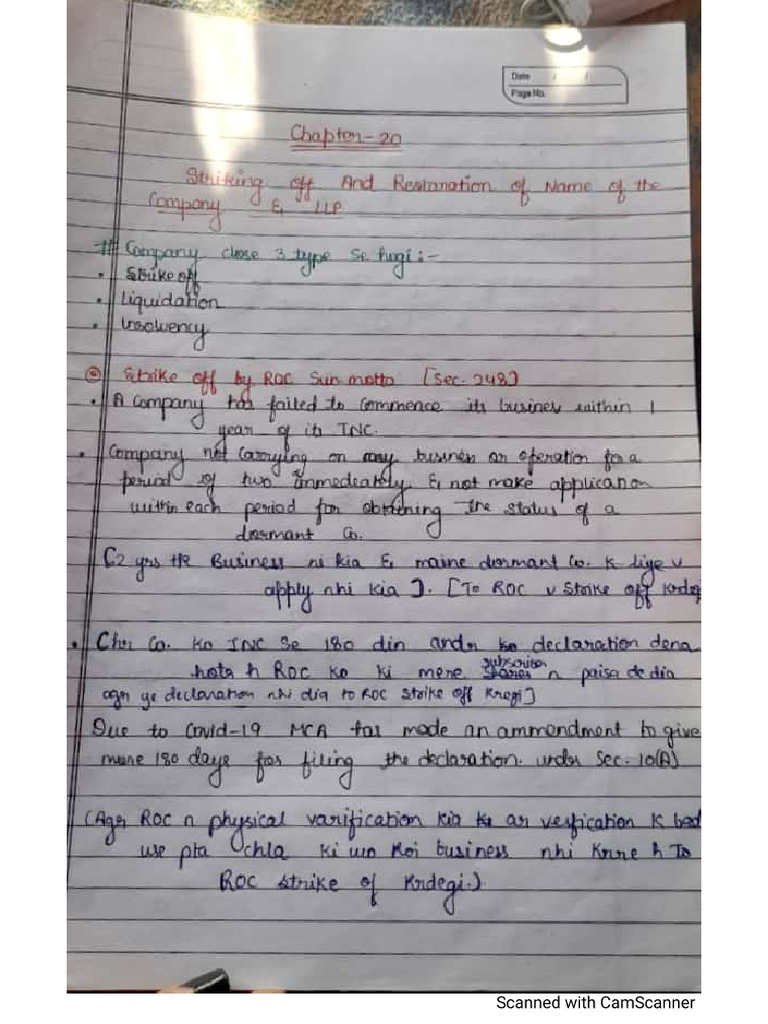 Date / /
Page No.
Chapter-20
Striking off And Restoration of Name of the
Company & LLP
# Company close 3 type se hugi :-
• Strike off
• Liquidation
• Insolvency
Strike off by ROC Suo motto [Sec. 248]
• A Company has failed to commence its business within 1
year of its INC.
• Company not carrying on any business or operation for a
period of two immediately & not make application
within each period for obtaining the status of a
dormant Co.
[2 yrs tk Business ni kia & maine dormant Co. k liye v
apply nhi kia]. [To ROC v strike off krdegi
• Co. ko INC se 180 din andr ke declaration dena
hota h ROC ko ki mere subscriber n paisa de dia
agr ye declaration nhi dia to ROC Strike off Kregi]
Due to Covid-19 MCA has made an ammendment to give
more 180 days for filing the declaration. under Sec. 10(A)
(Agr ROC n physical varification kia ke or verfication k bad
use pta chla ki wo koi business nhi krre h To
ROC strike of Krdegi.)
Scanned with CamScanner